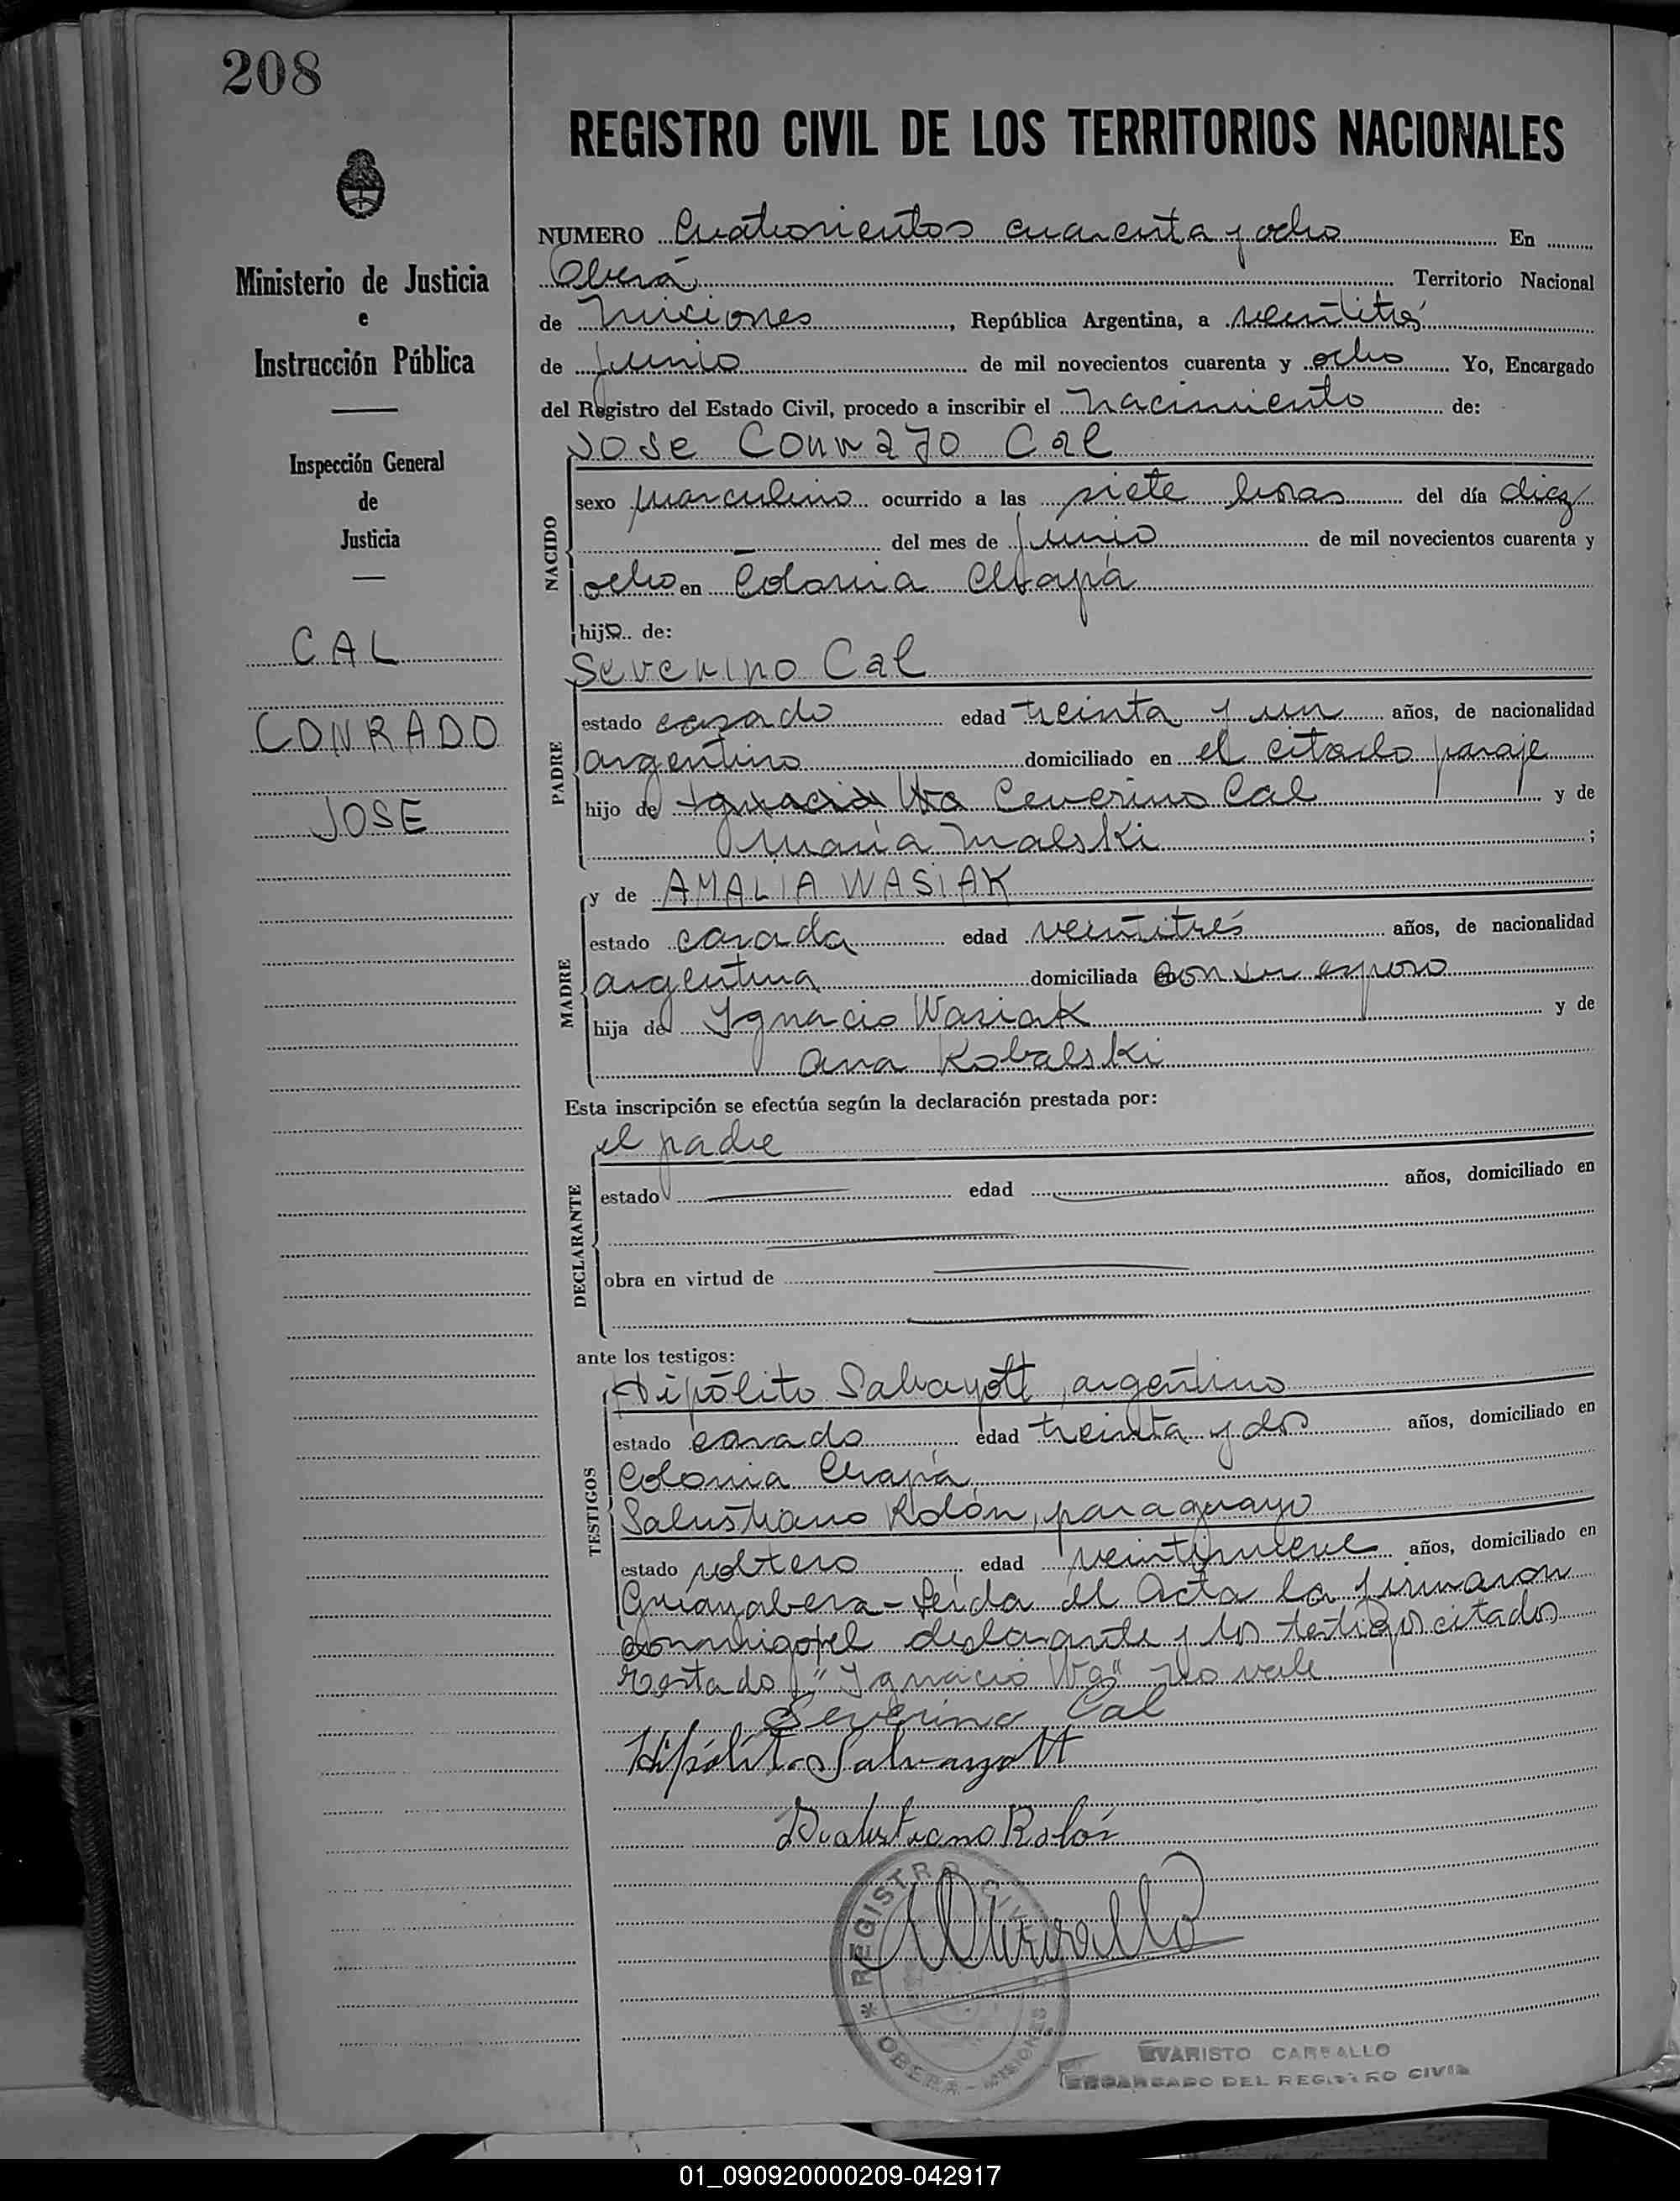 208
REGISTRO CIVIL DE LOS TERRITORIOS NACIONALES
Ministerio de Justicia
e
Instrucción Pública
Inspección General
de
Justicia
CAL
CONRADO
JOSE
NUMERO Cuatrocientos cuarenta y ocho En
Oberá Territorio Nacional
de Misiones, República Argentina, a veintitrés
de junio de mil novecientos cuarenta y ocho Yo, Encargado
del Registro del Estado Civil, procedo a inscribir el nacimiento de:
JOSE Conrado Cal
NACIDO
sexo masculino ocurrido a las siete horas del día diez
del mes de junio de mil novecientos cuarenta y
ocho en Colonia Chapá
hijo de:
Severino Cal
PADRE
estado casado edad treinta y un años, de nacionalidad
argentino domiciliado en el citado paraje
hijo de Ignacio Wa Ceverino Cal y de
María Malski ;
y de AMALIA WASIAK
MADRE
estado casada edad veintitrés años, de nacionalidad
argentina domiciliada con su esposo
hija de Ygnacio Wasiak y de
Ana Kobalski
Esta inscripción se efectúa según la declaración prestada por:
el padre
DECLARANTE
estado edad años, domiciliado en
obra en virtud de
ante los testigos:
Hipólito Salvayott, argentino
TESTIGOS
estado casado edad treinta y dos años, domiciliado en
Colonia Chapá
Salustiano Rolón, paraguayo
estado soltero edad veintinueve años, domiciliado en
Guayabera - Leída el Acta la firmaron
conmigo, el declarante y los testigos citados
Testado "Ygnacio Wa" no vale
Severino Cal
Hipólito Salvayott
Salustiano Rolón
REGISTRO CIVIL
OBERA - MISIONES
EVARISTO CARBALLO
ENCARGADO DEL REGISTRO CIVIL
01_090920000209-042917